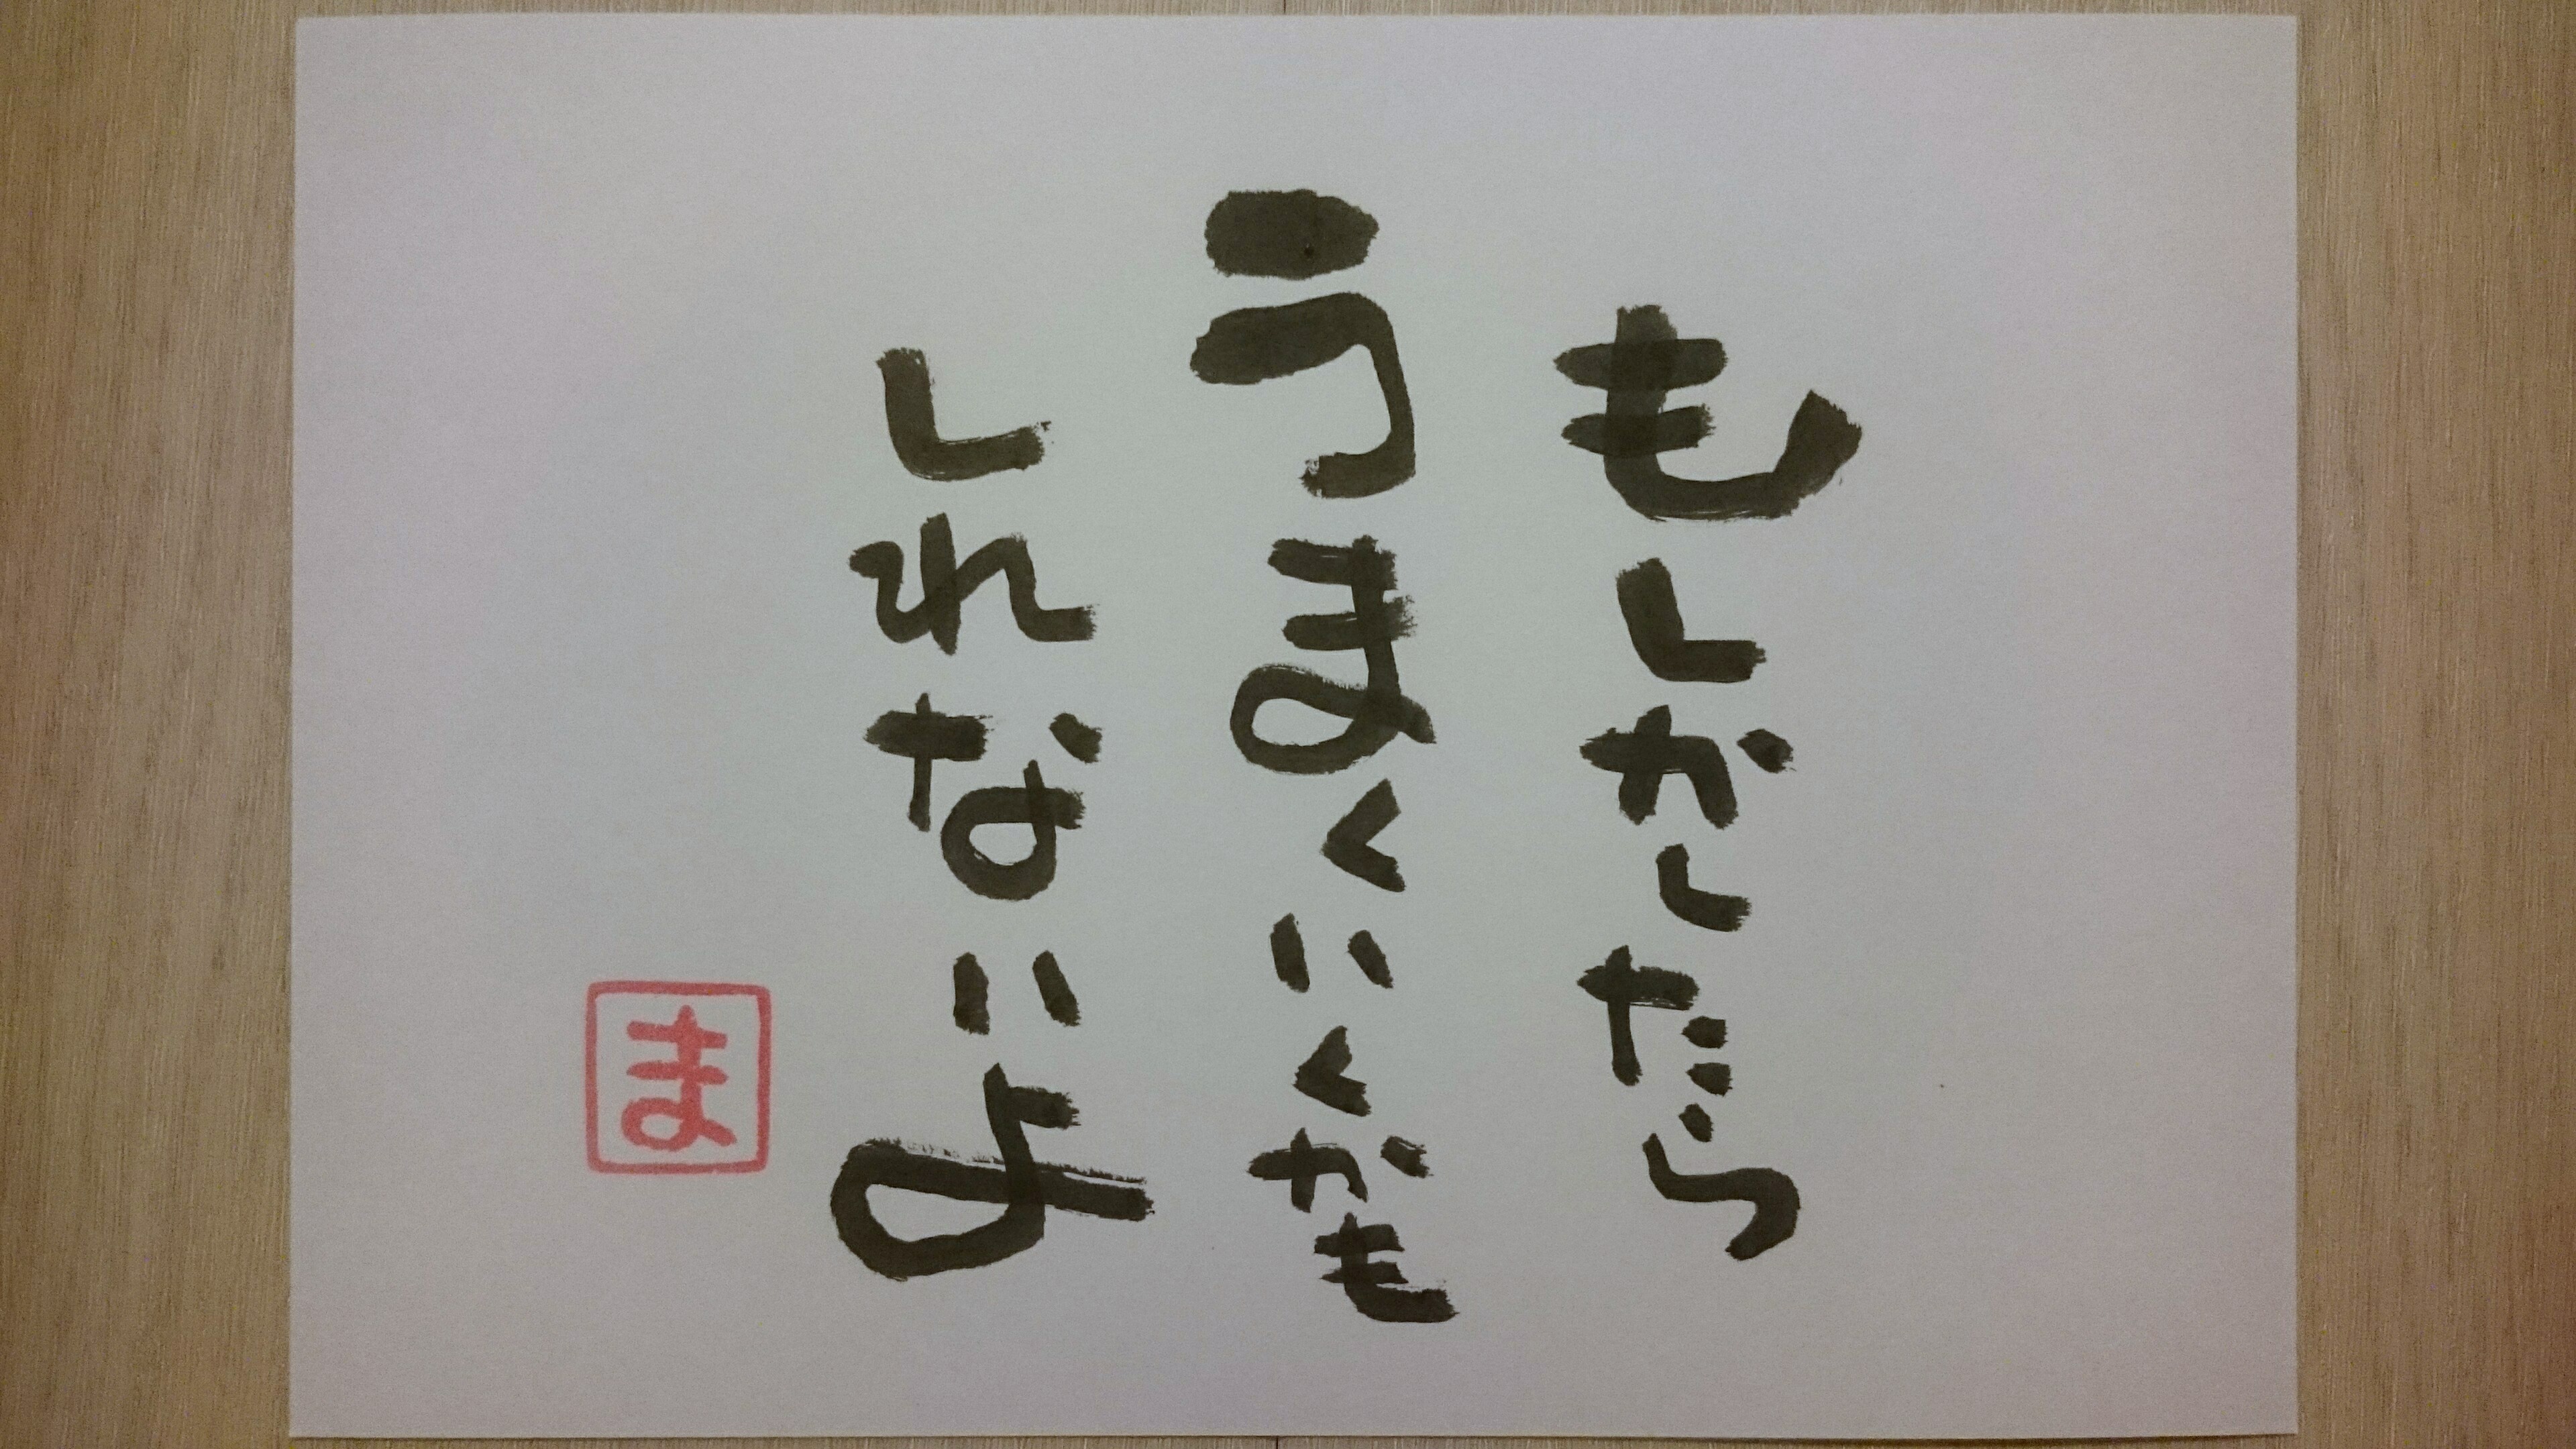 もしかしたら
うまくいくかも
しれないよ
ま